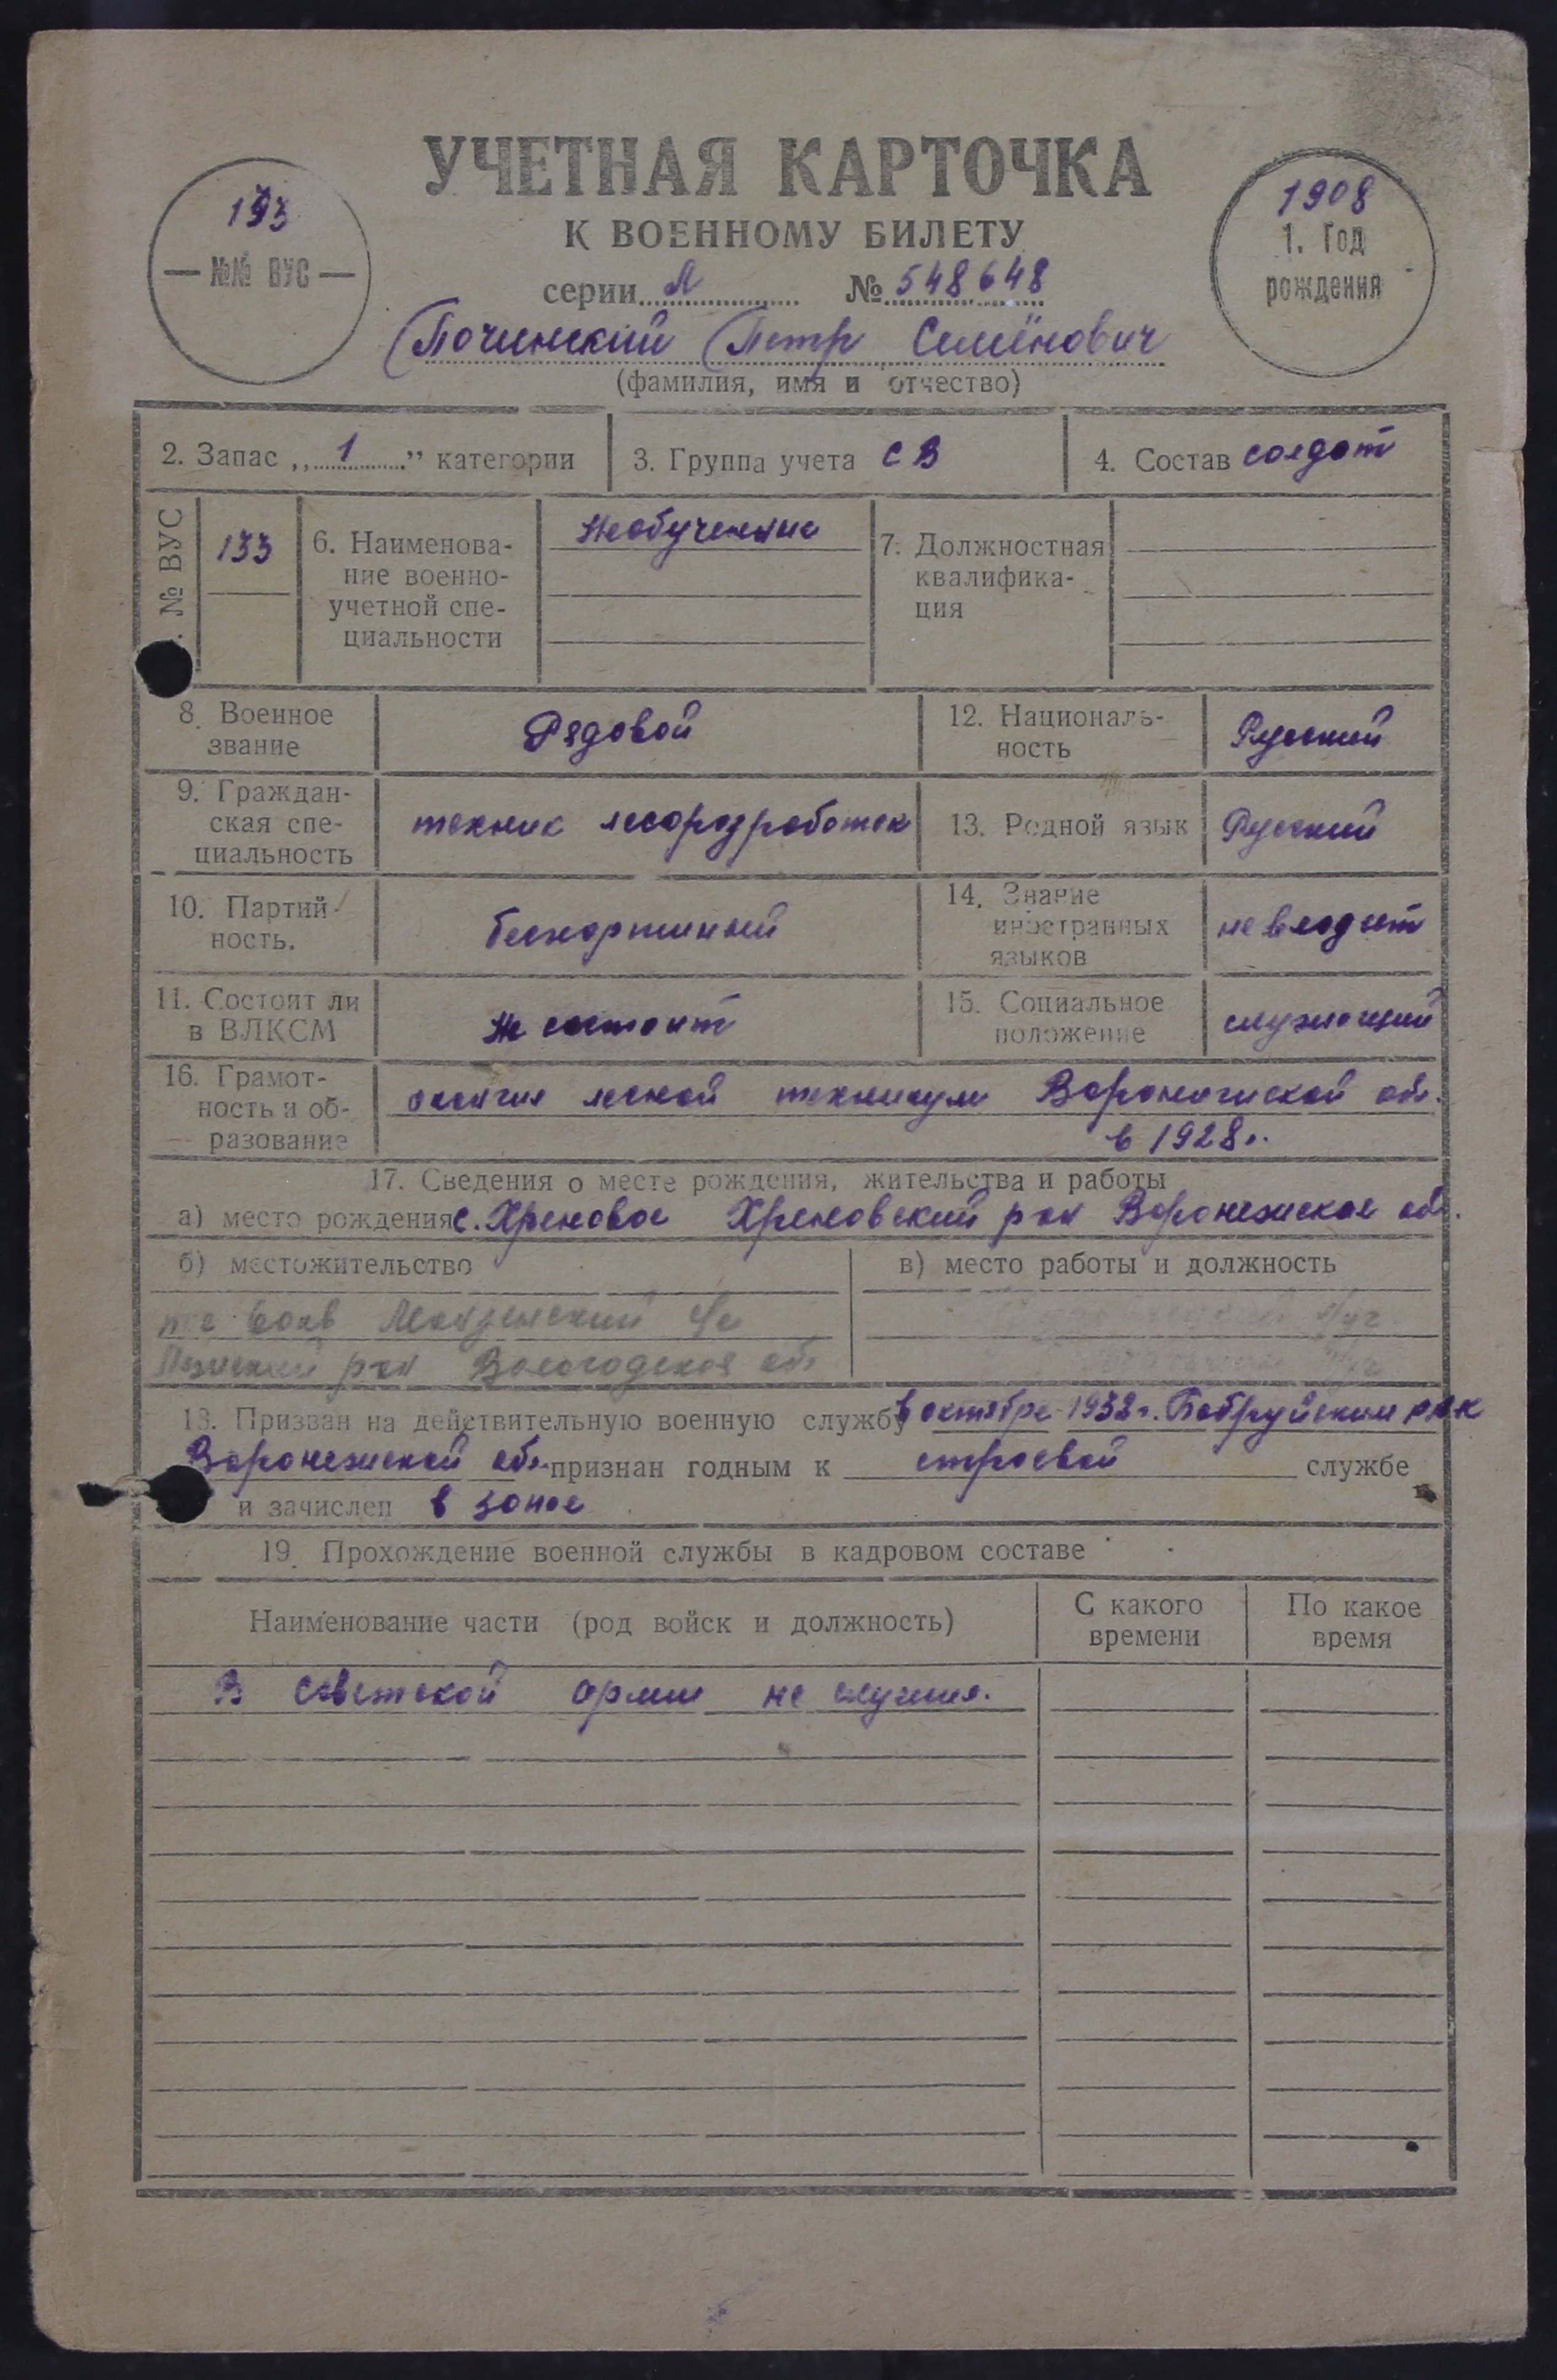 УЧЕТНАЯ КАРТОЧКА
К ВОЕННОМУ БИЛЕТУ
193
—№№ ВУС—
1908
1. Год
рождения
серии А № 548648
Починский Петр Семёнович
(фамилия, имя и отчество)
2. Запас „ 1 ” категории
3. Группа учета СВ
4. Состав солдат
№ ВУС
133
6. Наименова-
ние военно-
учетной спе-
циальности
Необученные
7. Должностная
квалифика-
ция
8. Военное
звание
Рядовой
12. Националь-
ность
Русский
9. Граждан-
ская спе-
циальность
техник лесоразработок
13. Родной язык
Русский
10. Партий-
ность.
беспартийный
14. Знание
иностранных
языков
не владеет
11. Состоит ли
в ВЛКСМ
Не состоит
15. Социальное
положение
служащий
16. Грамот-
ность и об-
разование
окончил лесной техникум Воронежской обл.
в 1928г.
17. Сведения о месте рождения, жительства и работы
а) место рождения с. Хреновое Хреновский р-он Воронежская обл.
б) местожительство
в) место работы и должность
р-он Вологодская обл
18. Призван на действительную военную службу в октябре 1932г. Бобруйским РВК
Воронежской обл. признан годным к строевой службе
и зачислен в запас
19. Прохождение военной службы в кадровом составе
Наименование части (род войск и должность)
С какого
времени
По какое
время
В Советской армии не служил.